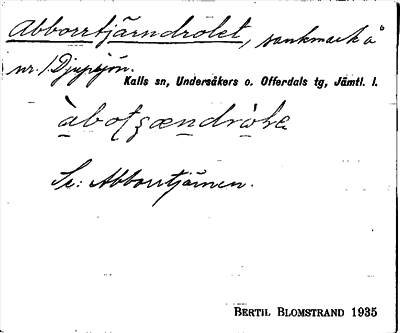 Abborrtjärndrolet, sankmark å
nr. 1 Djupsjön.
Kalls sn, Undersåkers o. Offerdals tg, Jämtl. l.
Se: Abborrtjärnen.
BERTIL BLOMSTRAND 1935